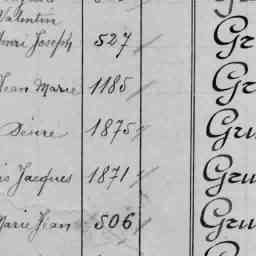 Valentin
Henri Joseph 527 Gr
Jean Marie 1185 Gr
Désiré 1875 Gru
Jacques 1871 Gru
Marie Jean 506 Gru